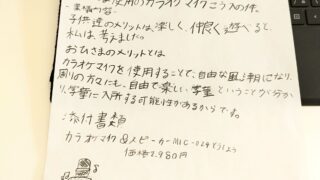 使用のカラオケマイクこう入の件。
業務内容
子供達のメリットは楽しく、仲良く遊べると、
私は、考えました。
おひさまのメリットとは
カラオケマイクを使用することで、自由な風潮になり、
周りの方々にも、自由で楽しい、学童ということが分か
り、学童に入所する可能性があるからです。
添付書類
カラオケマイク
価格2.980円